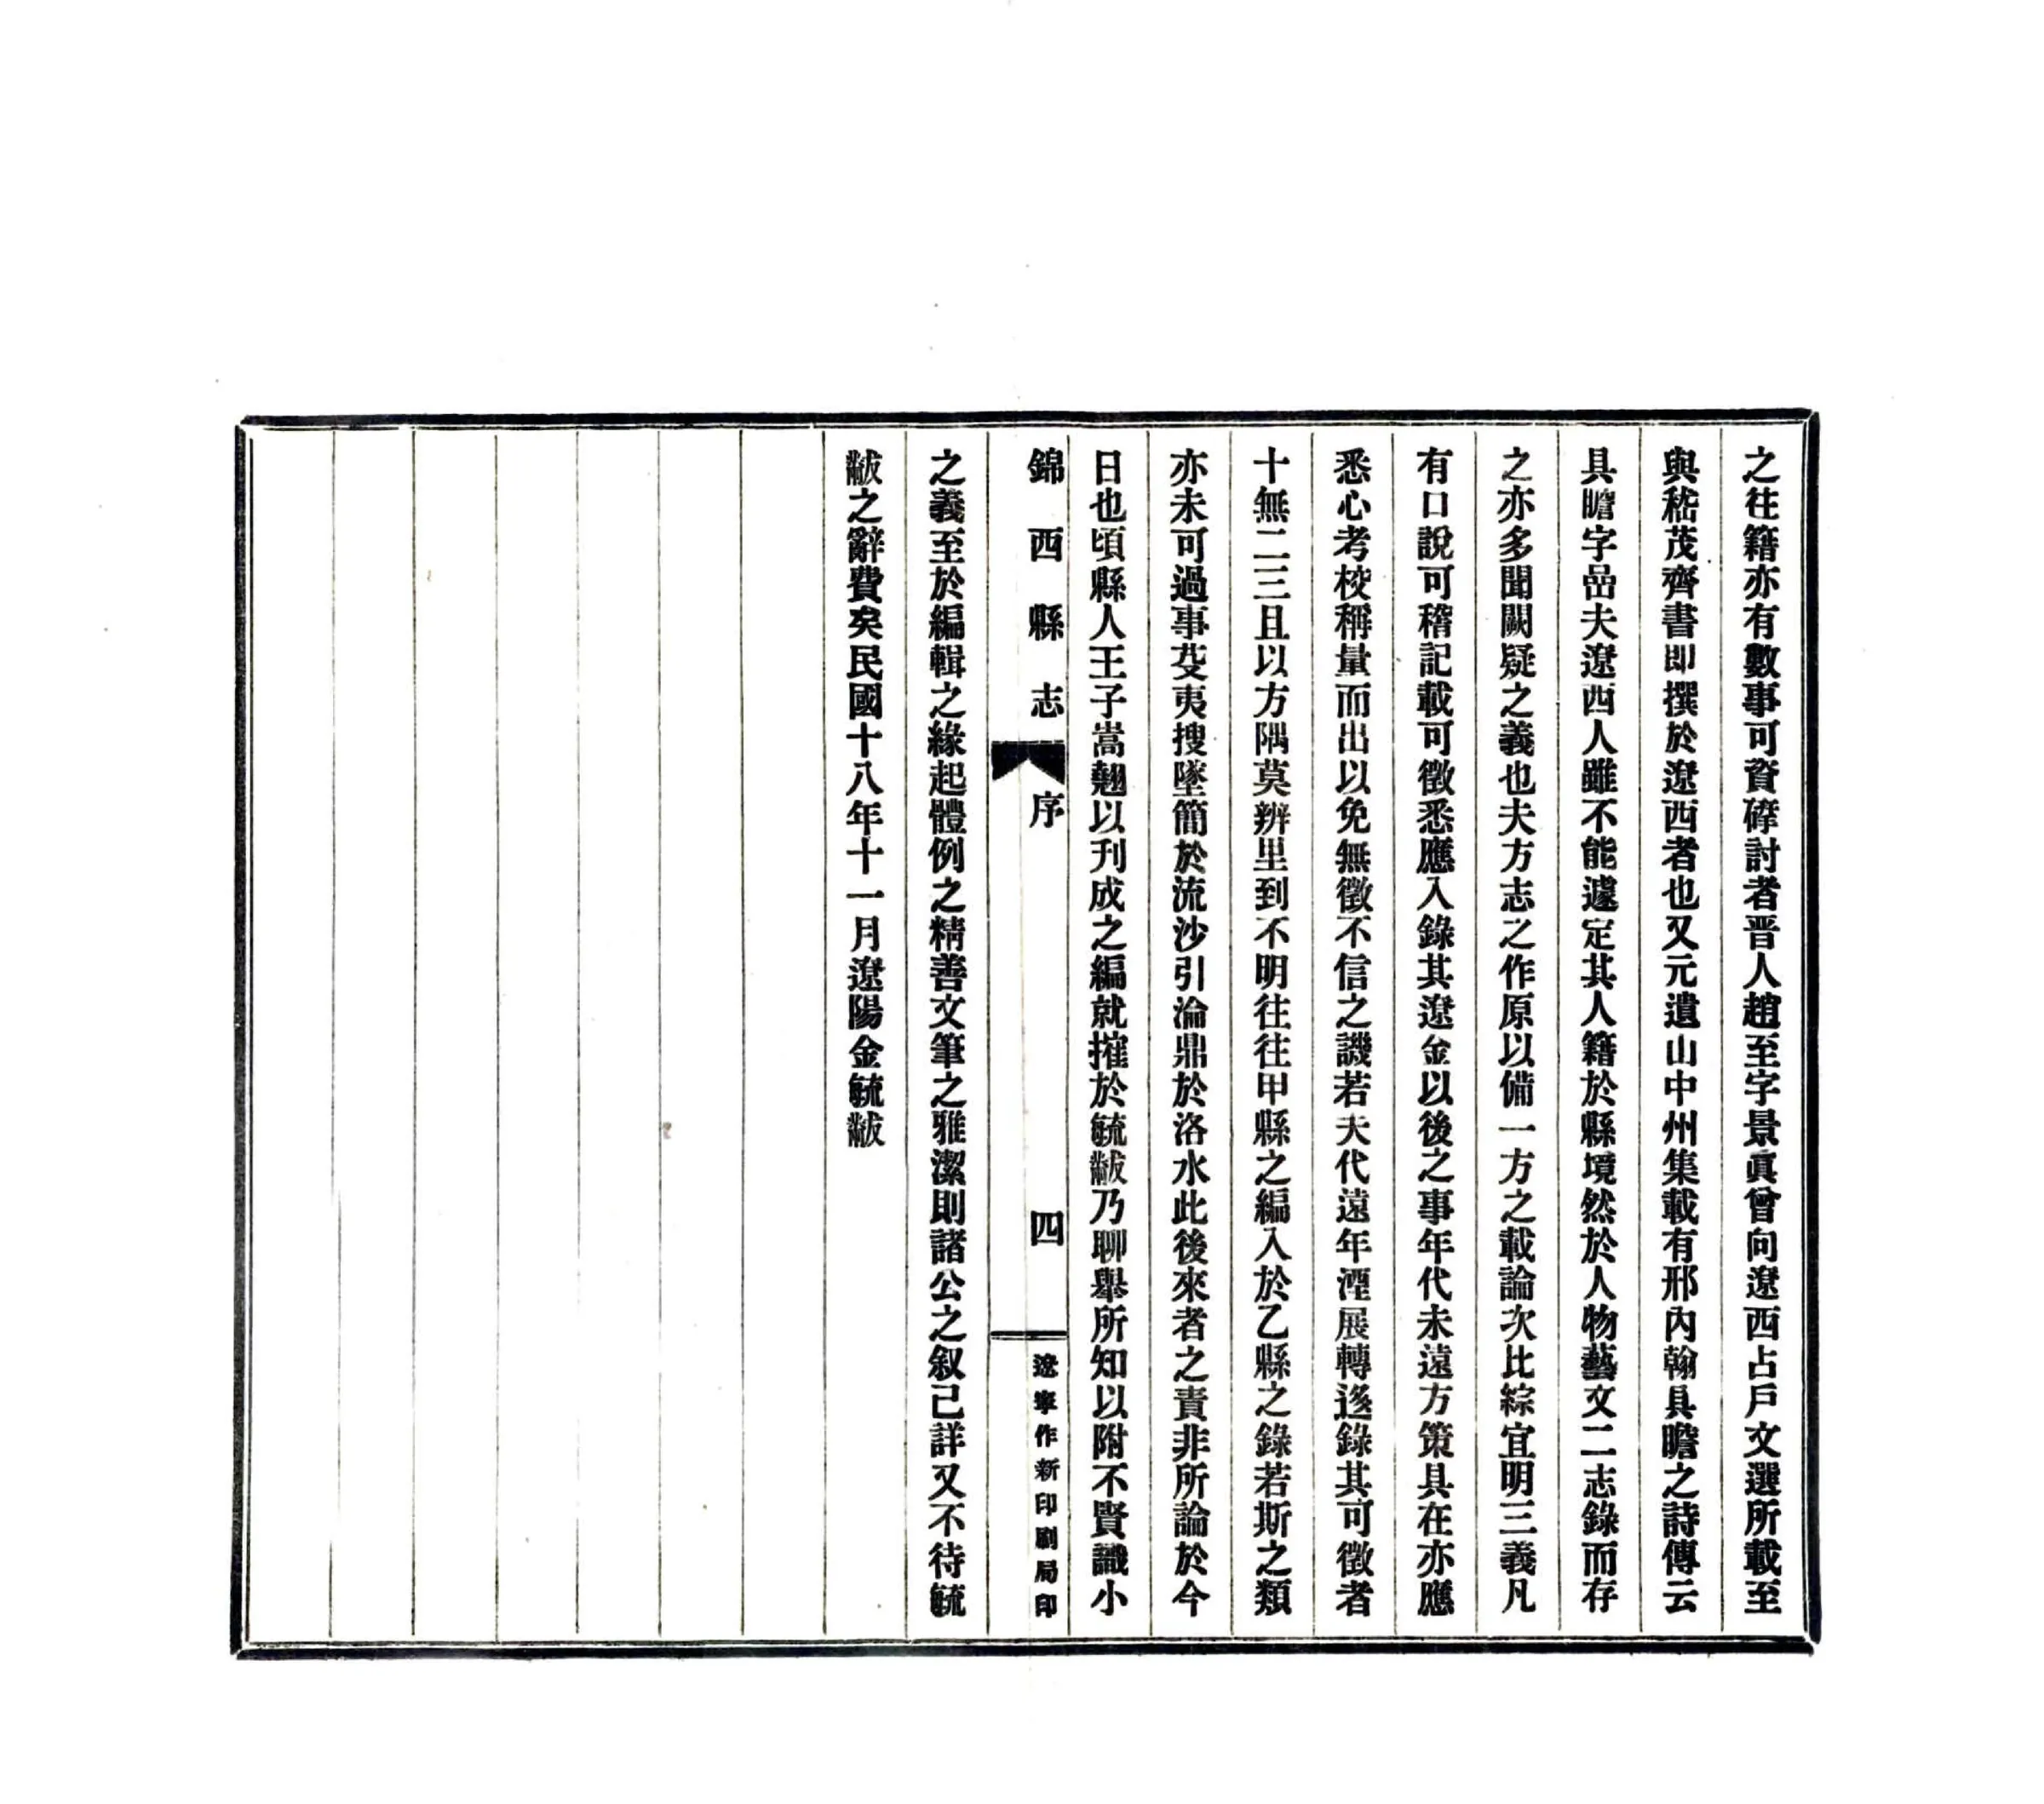 之往籍亦有數事可資碎討者晋人趙至字景眞曾向遼西占戶文選所載至
與嵇茂齊書即撰於遼西者也又元遺山中州集載有邢內翰具瞻之詩傳云
具瞻字嵒夫遼西人雖不能遽定其人籍於縣境然於人物藝文二志錄而存
之亦多聞闕疑之義也夫方志之作原以備一方之載論次比綜宜明三義凡
有口說可稽記載可徵悉應入錄其遼金以後之事年代未遠方策具在亦應
悉心考校稱量而出以免無徵不信之譏若夫代遠年湮展轉迻錄其可徵者
十無二三且以方隅莫辨里到不明往往甲縣之編入於乙縣之錄若斯之類
亦未可過事芟夷搜墜簡於流沙引淪鼎於洛水此後來者之責非所論於今
日也頃縣人王子嵩翹以刋成之編就搉於毓黻乃聊舉所知以附不賢識小
錦西縣志 序 四 遼寧作新印刷局印
之義至於編輯之緣起體例之精善文筆之雅潔則諸公之叙已詳又不待毓
黻之辭費矣民國十八年十一月遼陽金毓黻